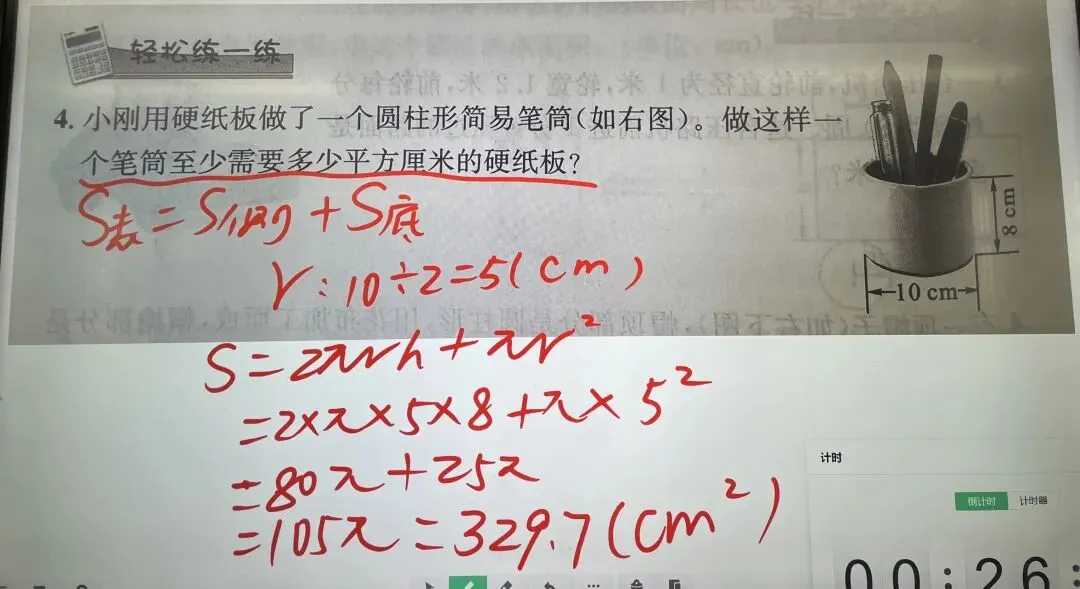 轻松练一练
4. 小刚用硬纸板做了一个圆柱形简易笔筒(如右图)。做这样一
个笔筒至少需要多少平方厘米的硬纸板?
8 cm
10 cm
S表=S侧+S底
r:10÷2=5(cm)
S=2πrh+πr²
=2×π×5×8+π×5²
=80π+25π
=105π=329.7(cm²)
计时
倒计时 计时器
00:26: